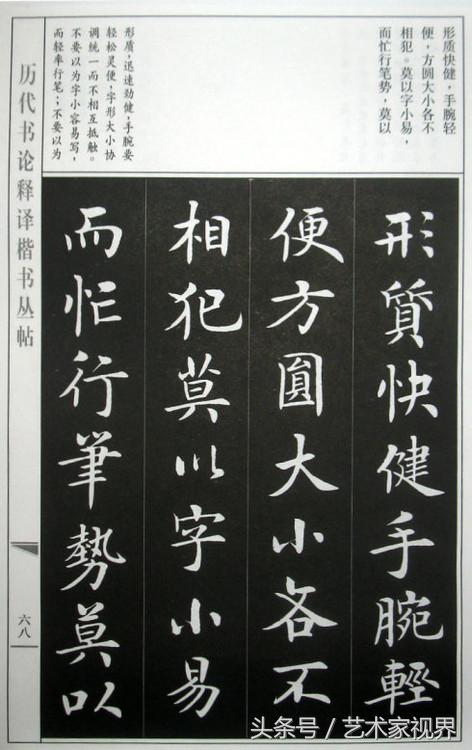 形质快健，手腕轻
便，方圆大小各不
相犯。莫以字小易，
而忙行笔势，莫以
形质，迅速劲健，手腕要
轻松灵便，字形大小协
调统一而不相互抵触。
不要以为字小容易写，
而轻率行笔；不要以为
形質快健手腕輕
便方圓大小各不
相犯莫以字小易
而忙行筆勢莫以
历代书论释译楷书丛帖
六八
头条号／艺术家视界